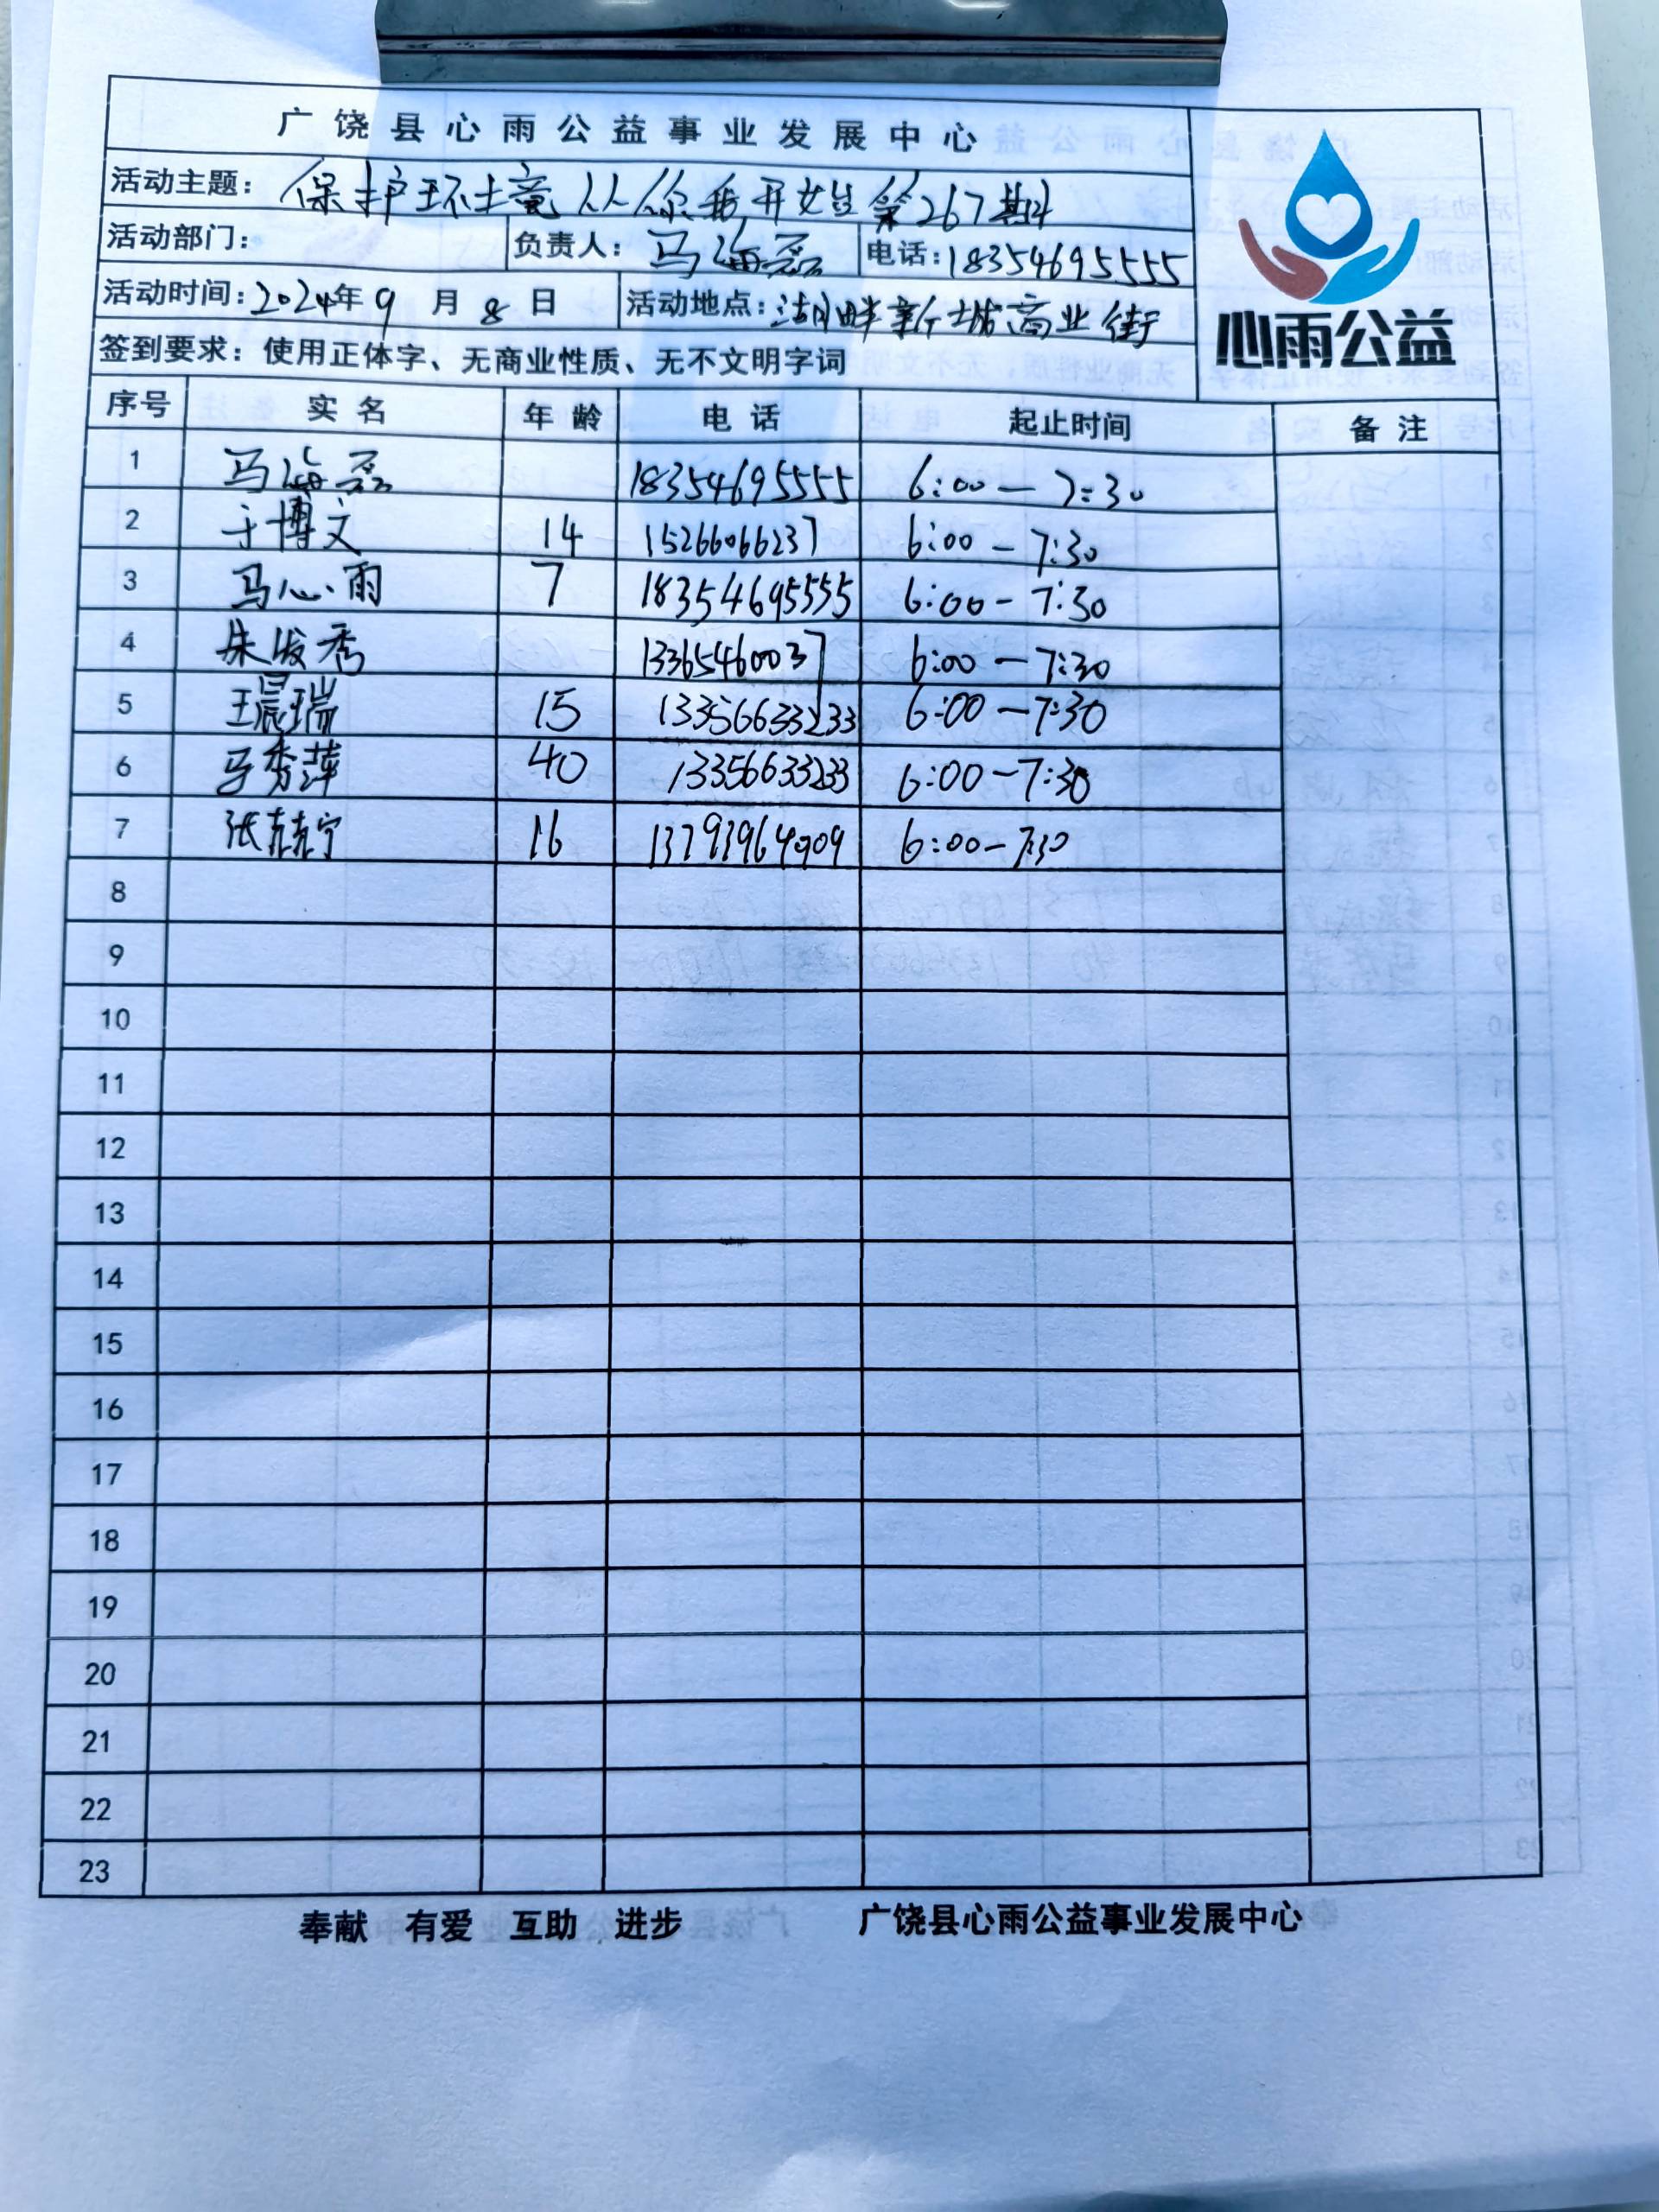 广饶县心雨公益事业发展中心
活动主题：保护环境从你我开始第267期
活动部门： 负责人：马海磊 电话：18354695555
活动时间：2024年9月8日 活动地点：湖畔新城商业街
心雨公益
签到要求：使用正体字、无商业性质、无不文明字词
序号 实名 年龄 电话 起止时间 备注
1 马海磊 18354695555 6:00—7:30
2 于博文 14 15266066237 6:00-7:30
3 马心雨 7 18354695555 6:00-7:30
4 朱俊秀 13365460037 6:00-7:30
5 王晨瑞 15 13356633233 6:00-7:30
6 马秀萍 40 13356633233 6:00-7:30
7 张 宁 16 13793964909 6:00-7:30
8
9
10
11
12
13
14
15
16
17
18
19
20
21
22
23
奉献 有爱 互助 进步 广饶县心雨公益事业发展中心